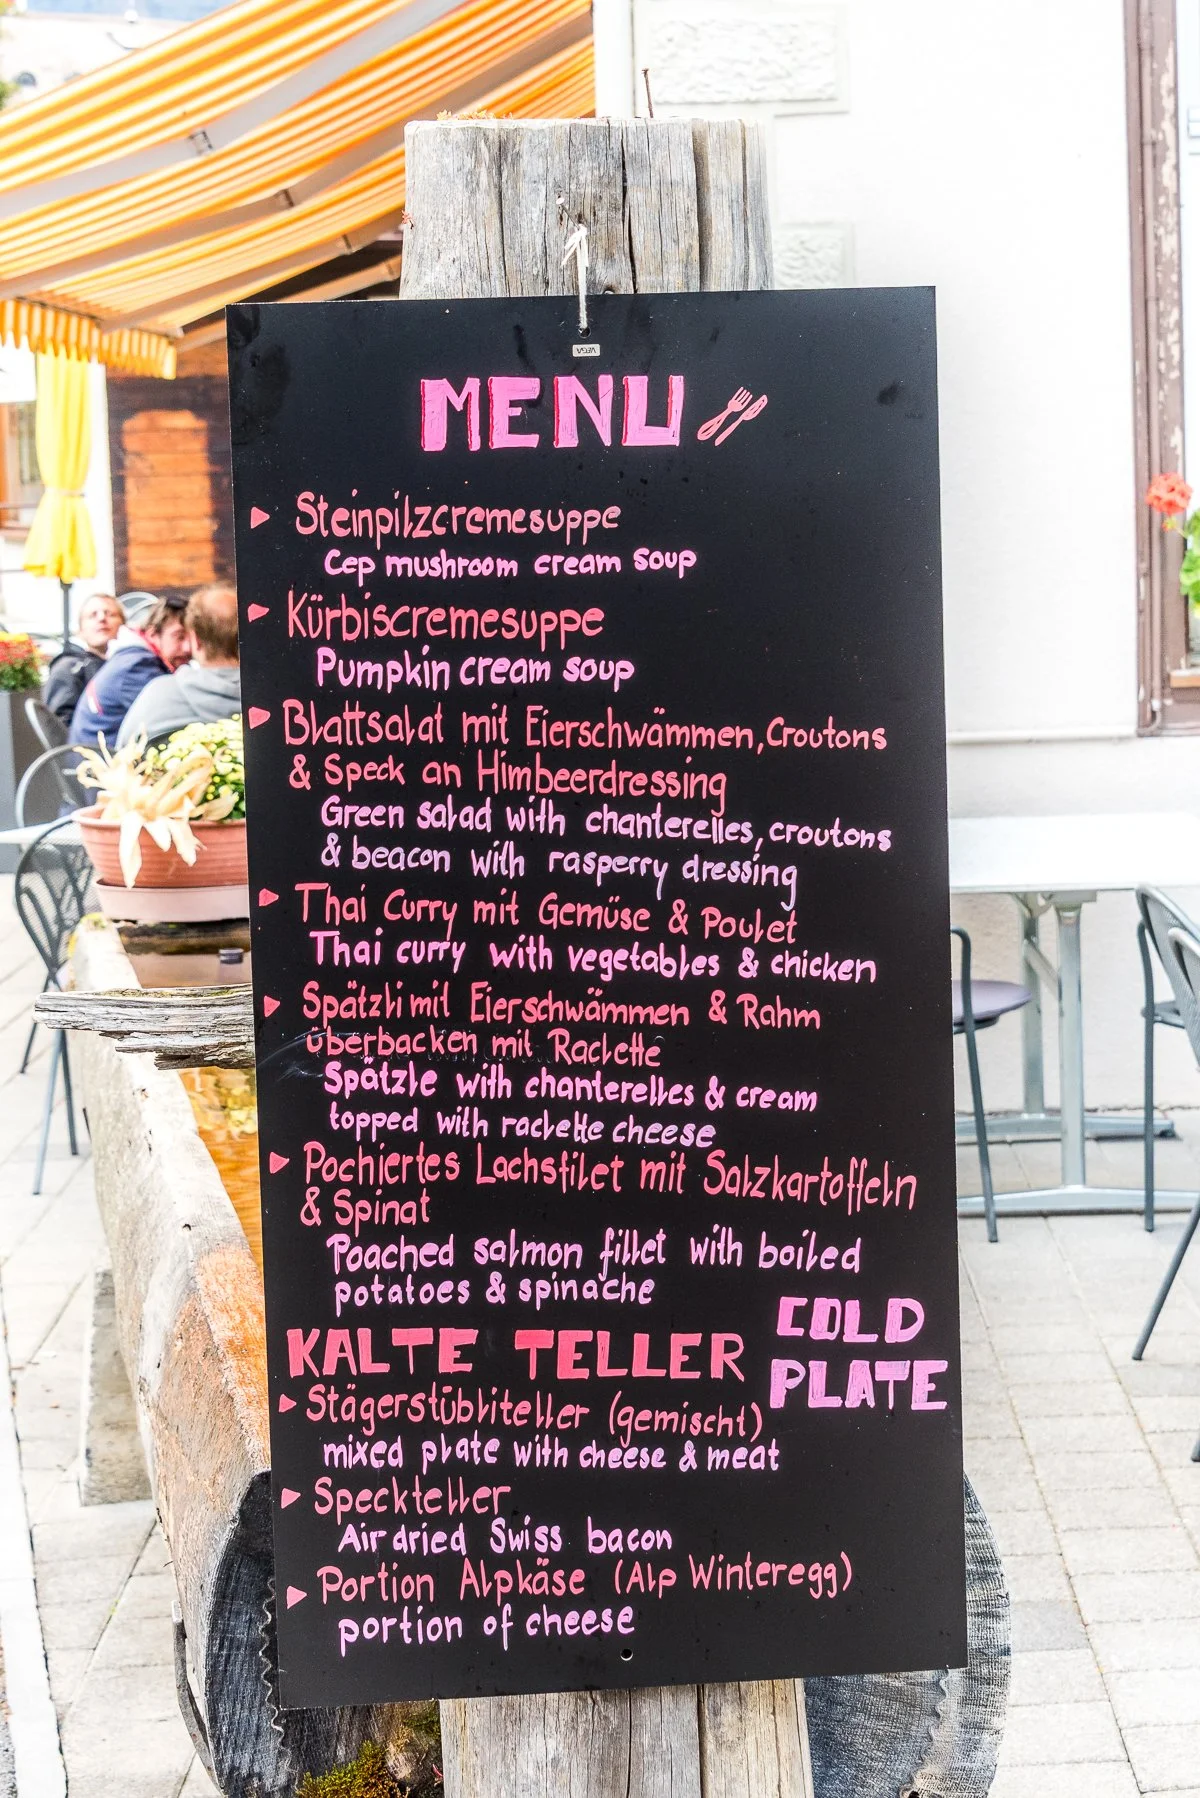 VEGA
MENU
Steinpilzcremesuppe
Cep mushroom cream soup
Kürbiscremesuppe
Pumpkin cream soup
Blattsalat mit Eierschwämmen, Croutons
& Speck an Himbeerdressing
Green salad with chanterelles, croutons
& beacon with rasperry dressing
Thai Curry mit Gemüse & Poulet
Thai curry with vegetables & chicken
Spätzli mit Eierschwämmen & Rahm
überbacken mit Raclette
Spätzle with chanterelles & cream
topped with raclette cheese
Pochiertes Lachsfilet mit Salzkartoffeln
& Spinat
Poached salmon fillet with boiled
potatoes & spinache
KALTE TELLER
COLD
PLATE
Stägerstübliteller (gemischt)
mixed plate with cheese & meat
Speckteller
Air dried Swiss bacon
Portion Alpkäse (Alp Winteregg)
portion of cheese